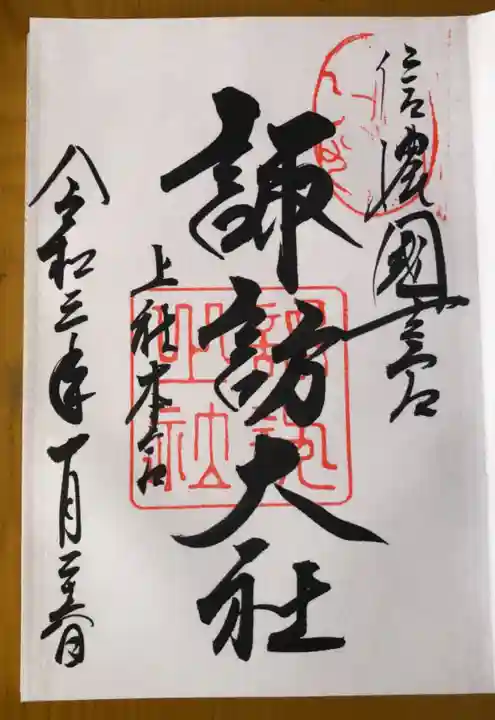 信濃國一宮
諏訪大社
上社本宮
令和三年一月二十六日